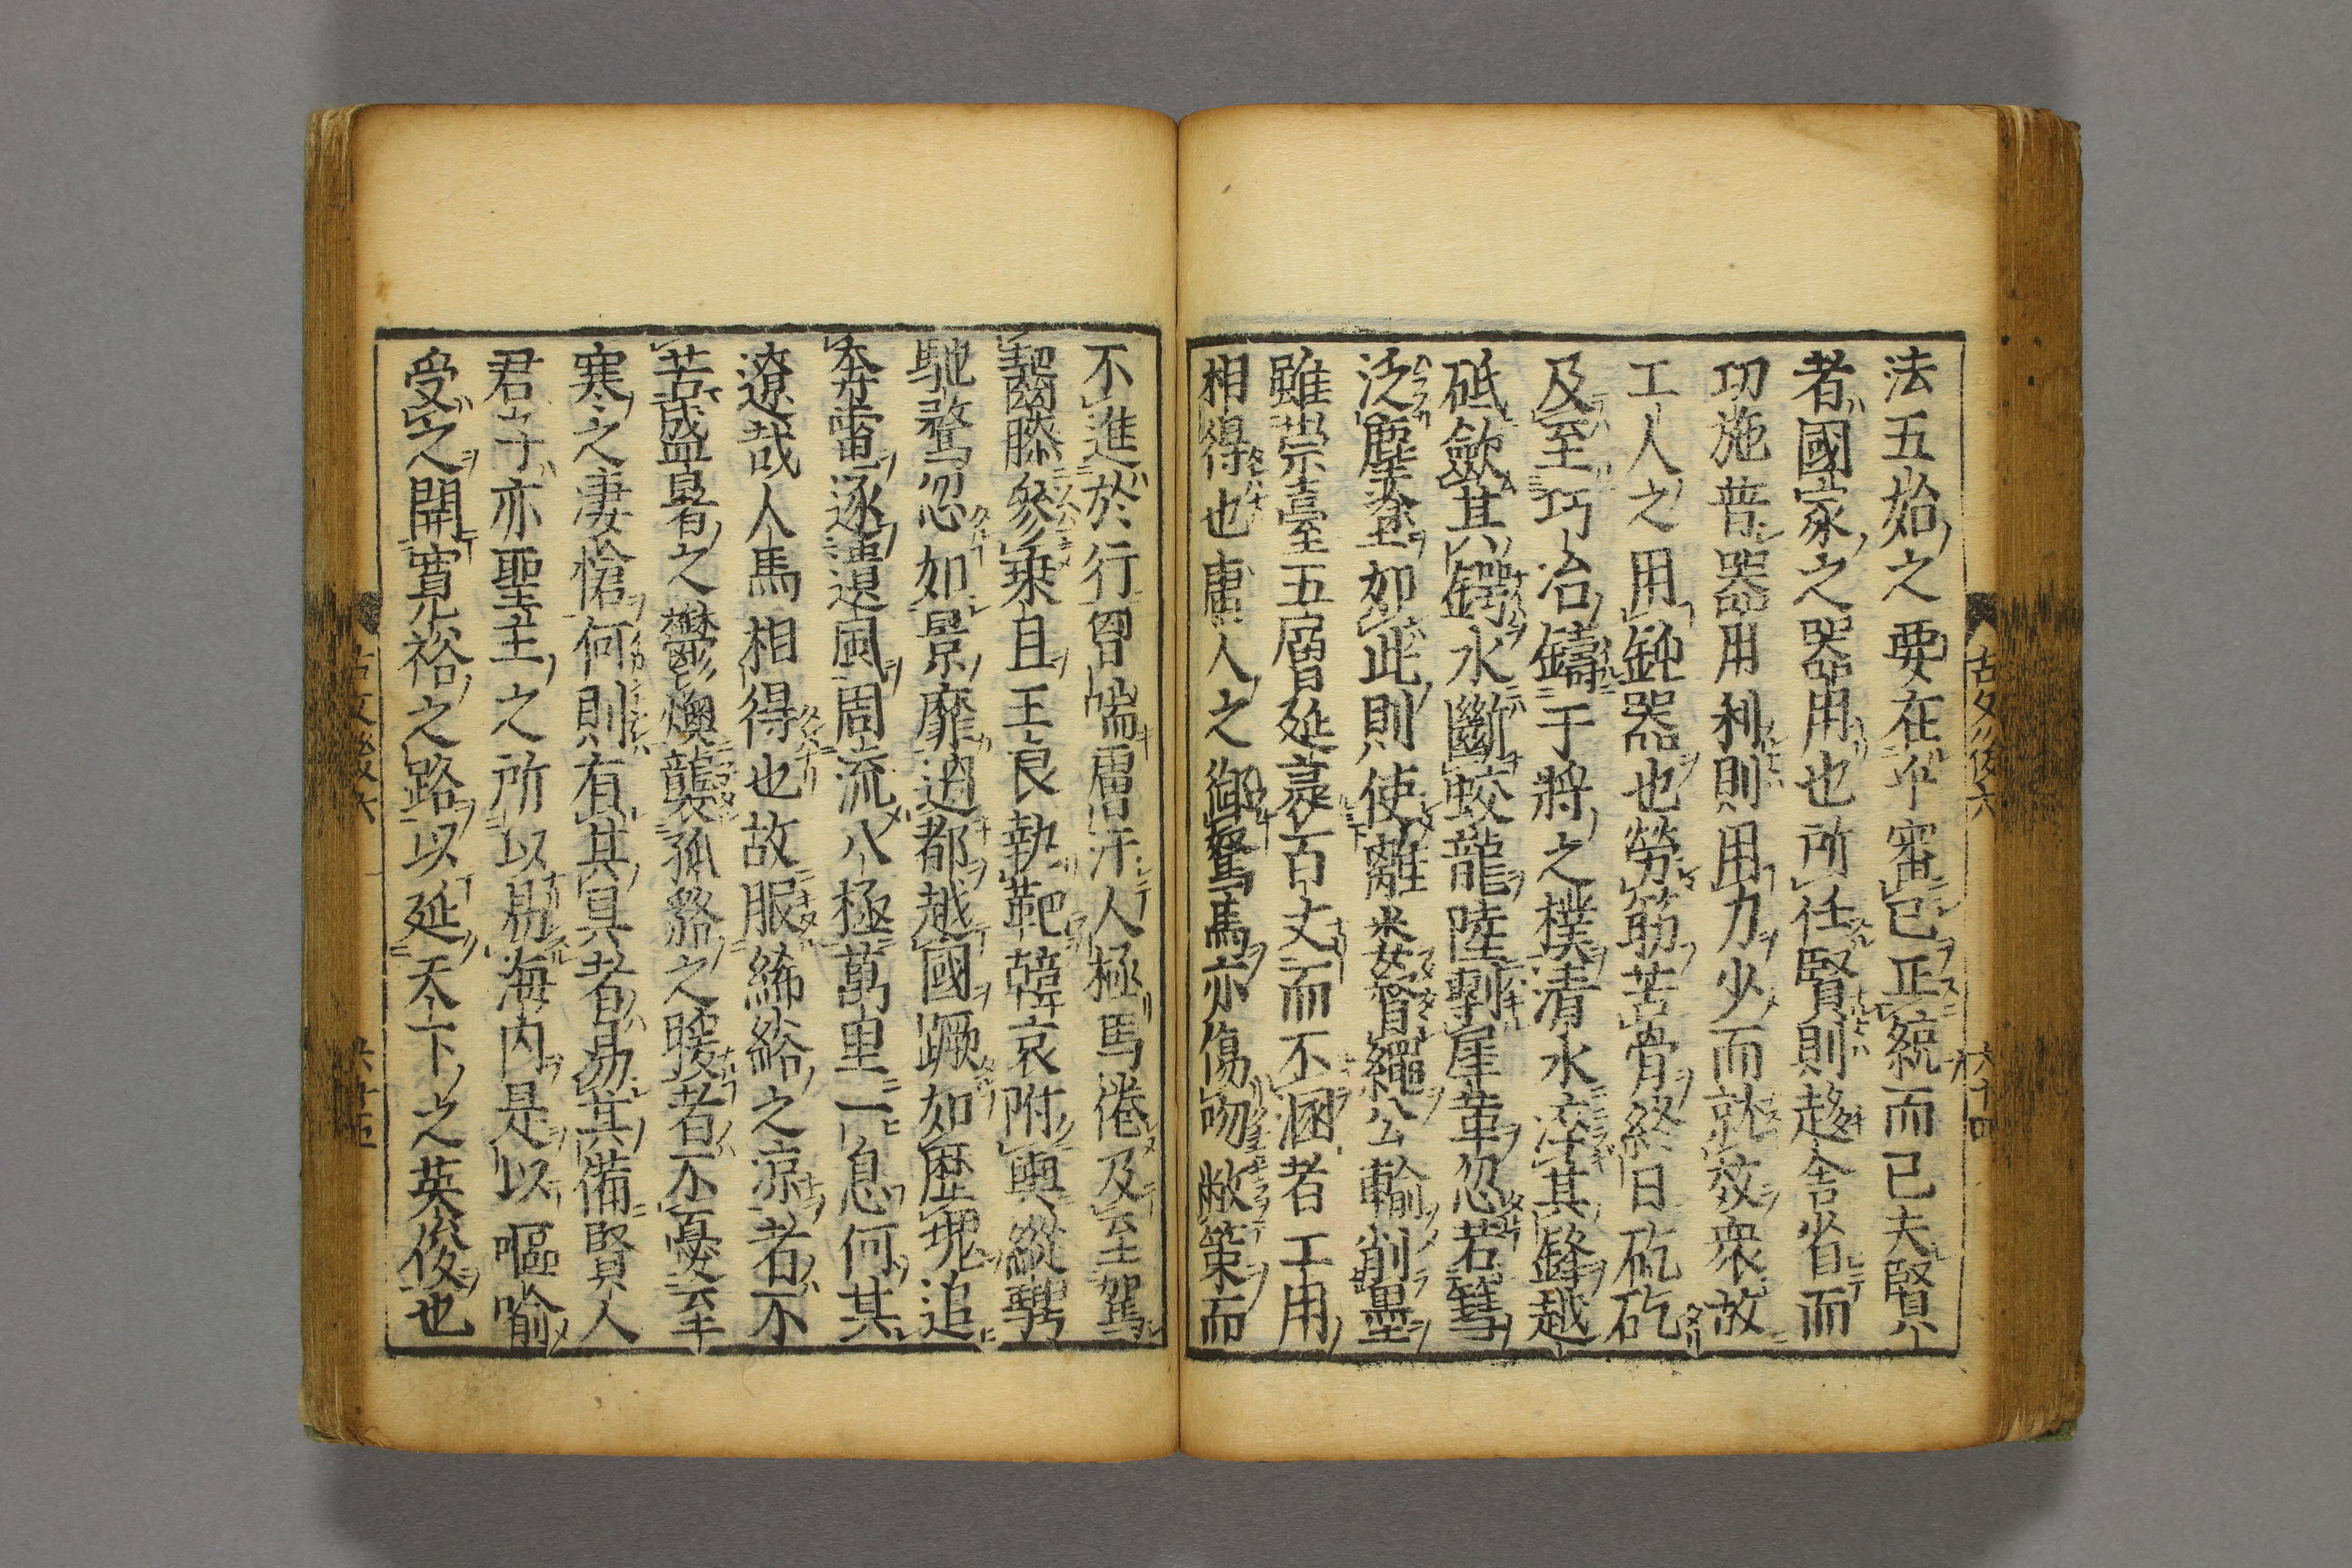 法五始之要在乎審己正統而已夫賢
者國家之器用也所任賢則趍舎省而
功施普器用利則用力少而就效衆故
工人之用鈍器也勞筋苦骨終日矻矻
及至巧冶鑄干將之樸清水淬其鋒越
砥歛其鍔水斷蛟龍陸剸犀革忽若篲
泛塵塗如此則使離婁督繩公輸削墨
雖崇臺五層延袤百丈而不溷者工用
相得也庸人之御駑馬亦傷吻敝策而
不進於行胷喘膚汗人極馬倦及至駕
齧膝驂乗且王良執靶韓哀附輿縱騁
馳騖忽如景靡過都越國蹶如歴塊追
奔電逐遺風周流八極萬里一息何其
遼哉人馬相得也故服絺綌之凉者不
苦盛暑之鬱燠襲狐貉之暖者不憂至
寒之凄愴何則有其具者易其備賢人
君子亦聖主之所以易海内是以嘔喻
受之開寛裕之路以延天下之英俊也
古文後六
六十四